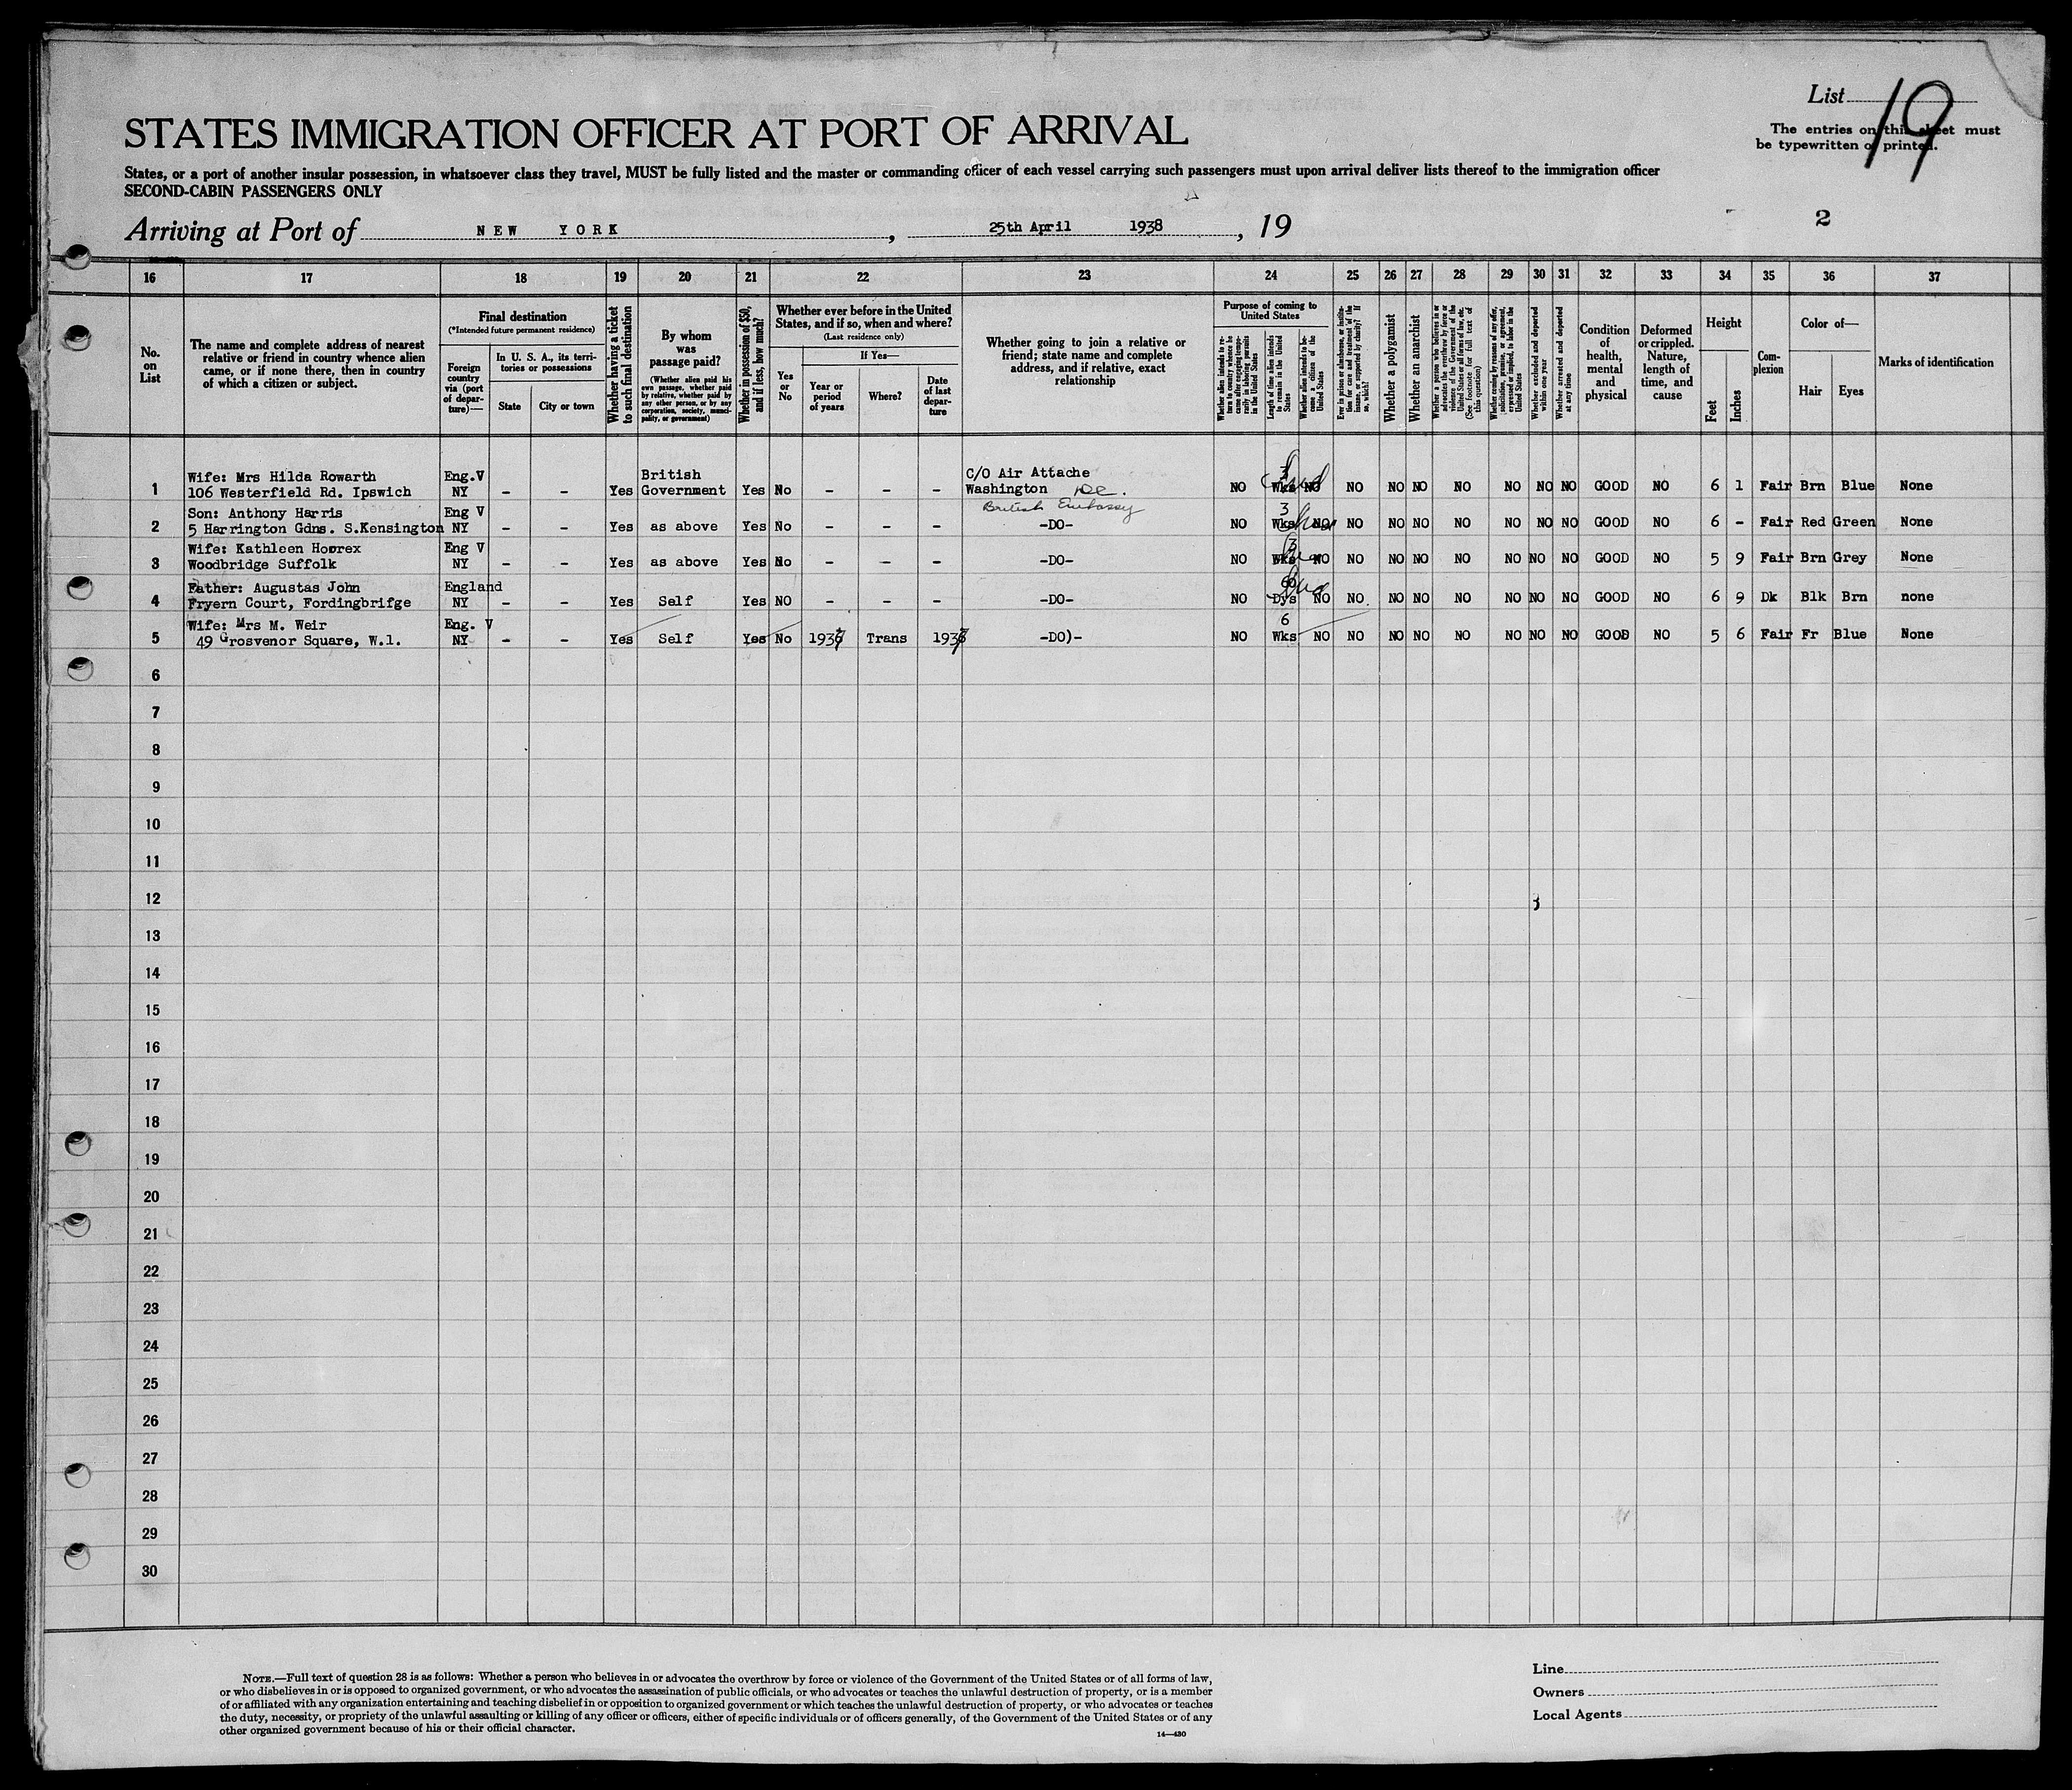 List 19
The entries on this sheet must
be typewritten or printed.
STATES IMMIGRATION OFFICER AT PORT OF ARRIVAL
States, or a port of another insular possession, in whatsoever class they travel, MUST be fully listed and the master or commanding officer of each vessel carrying such passengers must upon arrival deliver lists thereof to the immigration officer
SECOND-CABIN PASSENGERS ONLY
Arriving at Port of NEW YORK, 25th April 1938, 19
2
16 17 18 19 20 21 22 23 24 25 26 27 28 29 30 31 32 33 34 35 36 37
No.
on
List
The name and complete address of nearest
relative or friend in country whence alien
came, or if none there, then in country
of which a citizen or subject.
Final destination
(*Intended future permanent residence)
Foreign
country
via (port
of depar-
ture)—
In U. S. A., its terri-
tories or possessions
State City or town
Whether having a ticket
to such final destination
By whom
was
passage paid?
(Whether alien paid his
own passage, whether paid
by relative, whether paid by
any other person, or by any
corporation, society, munici-
pality, or government)
Whether in possession of $50,
and if less, how much?
Whether ever before in the United
States, and if so, when and where?
(Last residence only)
Yes
or
No
If Yes—
Year or
period
of years
Where?
Date
of last
depar-
ture
Whether going to join a relative or
friend; state name and complete
address, and if relative, exact
relationship
Purpose of coming to
United States
Whether alien intends to re-
turn to country whence he
came after engaging tempo-
rarily in laboring pursuits
in the United States
Length of time alien intends
to remain in the United
States
Whether alien intends to be-
come a citizen of the
United States
Ever in prison or almshouse, or institu-
tion for care and treatment of the
insane, or supported by charity? If
so, which?
Whether a polygamist
Whether an anarchist
Whether a person who believes in or
advocates the overthrow by force or
violence of the Government of the
United States or all forms of law, etc.
(See footnote for full text of
this question)
Whether coming by reason of any offer,
solicitation, promise, or agreement,
expressed or implied, to labor in the
United States
Whether excluded and deported
within one year
Whether arrested and deported
at any time
Condition
of
health,
mental
and
physical
Deformed
or crippled.
Nature,
length of
time, and
cause
Height
Feet
Inches
Com-
plexion
Color of—
Hair Eyes
Marks of identification
Wife: Mrs Hilda Rowarth Eng.V British C/O Air Attache 3
1 106 Westerfield Rd. Ipswich NY - - Yes Government Yes No - - - Washington DC. NO Wks NO NO NO NO NO NO NO NO GOOD NO 6 1 Fair Brn Blue None
British Embassy
Son: Anthony Harris Eng V 3
2 5 Harrington Gdns. S.Kensington NY - - Yes as above Yes No - - - -DO- NO Wks NO NO NO NO NO NO NO NO GOOD NO 6 - Fair Red Green None
Wife: Kathleen Hoorex Eng V 3
3 Woodbridge Suffolk NY - - Yes as above Yes No - - - -DO- NO Wks NO NO NO NO NO NO NO NO GOOD NO 5 9 Fair Brn Grey None
Father: Augustas John England 60
4 Fryern Court, Fordingbrifge NY - - Yes Self Yes NO - - - -DO- NO Dys NO NO NO NO NO NO NO NO GOOD NO 6 9 Dk Blk Brn none
Wife: Mrs M. Weir Eng. V 6
5 49 Grosvenor Square, W.1. NY - - Yes Self Yes No 1937 Trans 1937 -DO)- NO Wks NO NO NO NO NO NO NO NO GOOD NO 5 6 Fair Fr Blue None
6
7
8
9
10
11
12
13
14
15
16
17
18
19
20
21
22
23
24
25
26
27
28
29
30
NOTE.—Full text of question 28 is as follows: Whether a person who believes in or advocates the overthrow by force or violence of the Government of the United States or of all forms of law,
or who disbelieves in or is opposed to organized government, or who advocates the assassination of public officials, or who advocates or teaches the unlawful destruction of property, or is a member
of or affiliated with any organization entertaining and teaching disbelief in or opposition to organized government or which teaches the unlawful destruction of property, or who advocates or teaches
the duty, necessity, or propriety of the unlawful assaulting or killing of any officer or officers, either of specific individuals or of officers generally, of the Government of the United States or of any
other organized government because of his or their official character.
14—430
Line
Owners
Local Agents